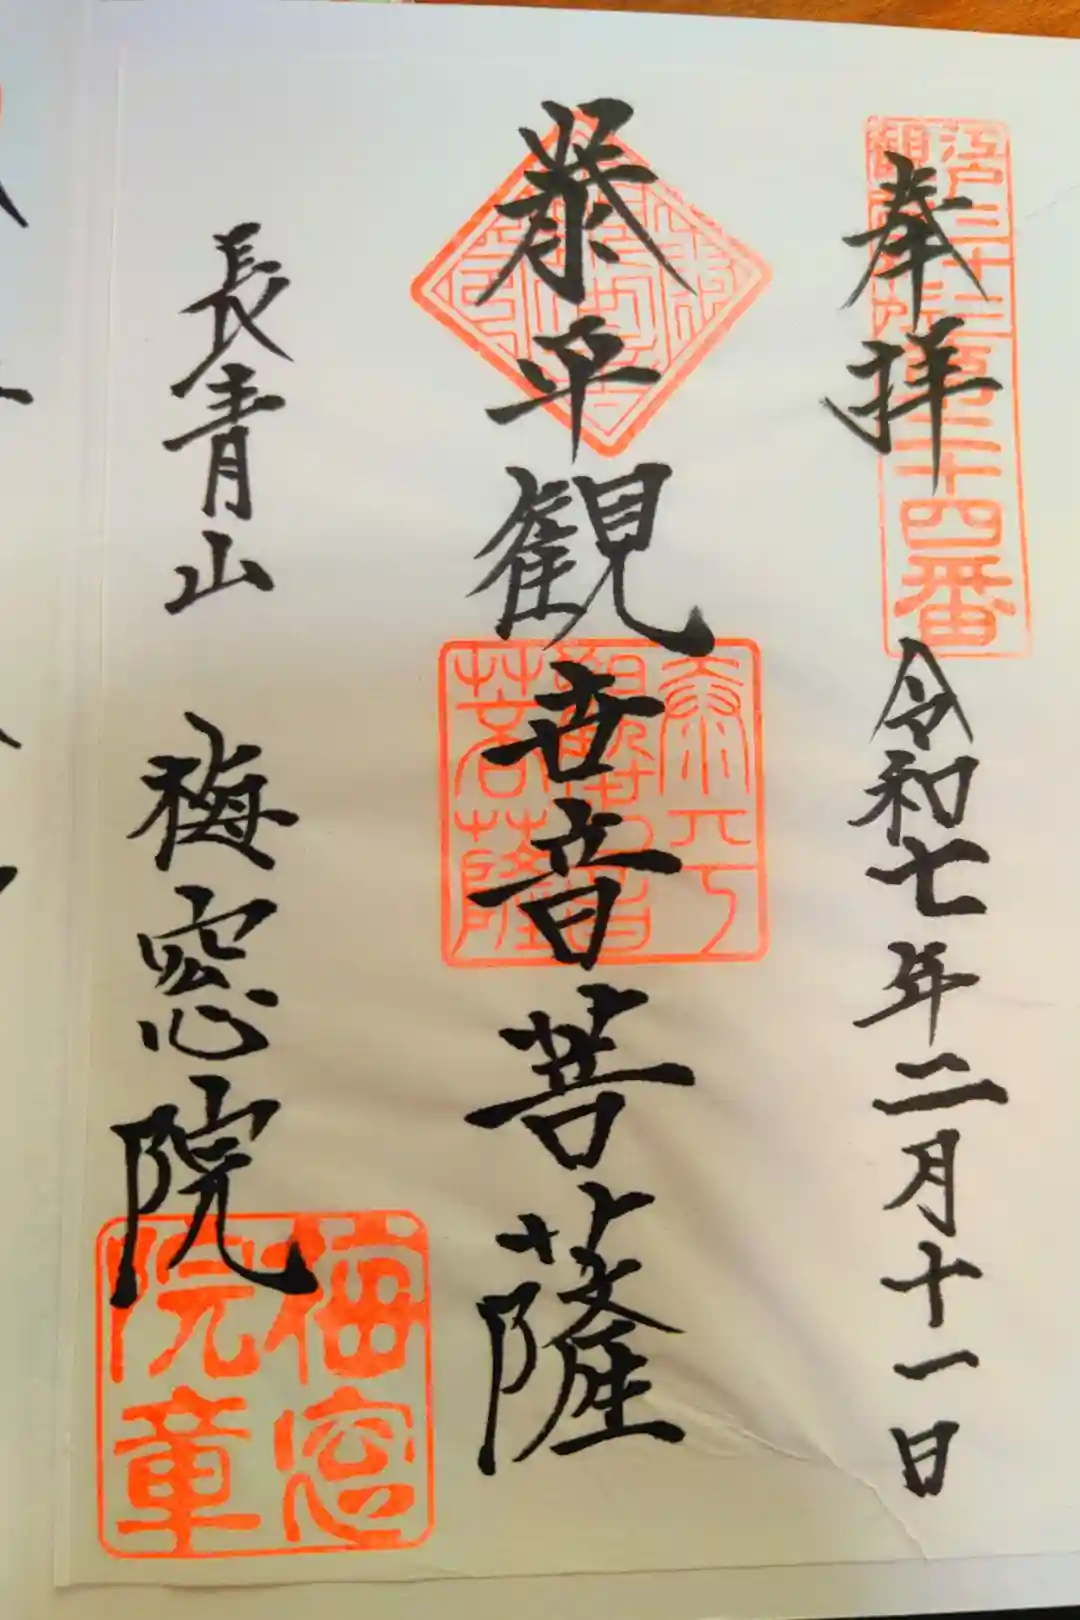 江戸三十三
観音札所第二十四番
奉拝
令和七年二月十一日
泰平観世音菩薩
泰平
観世音
菩薩
長青山
梅窓院
梅窓
院章